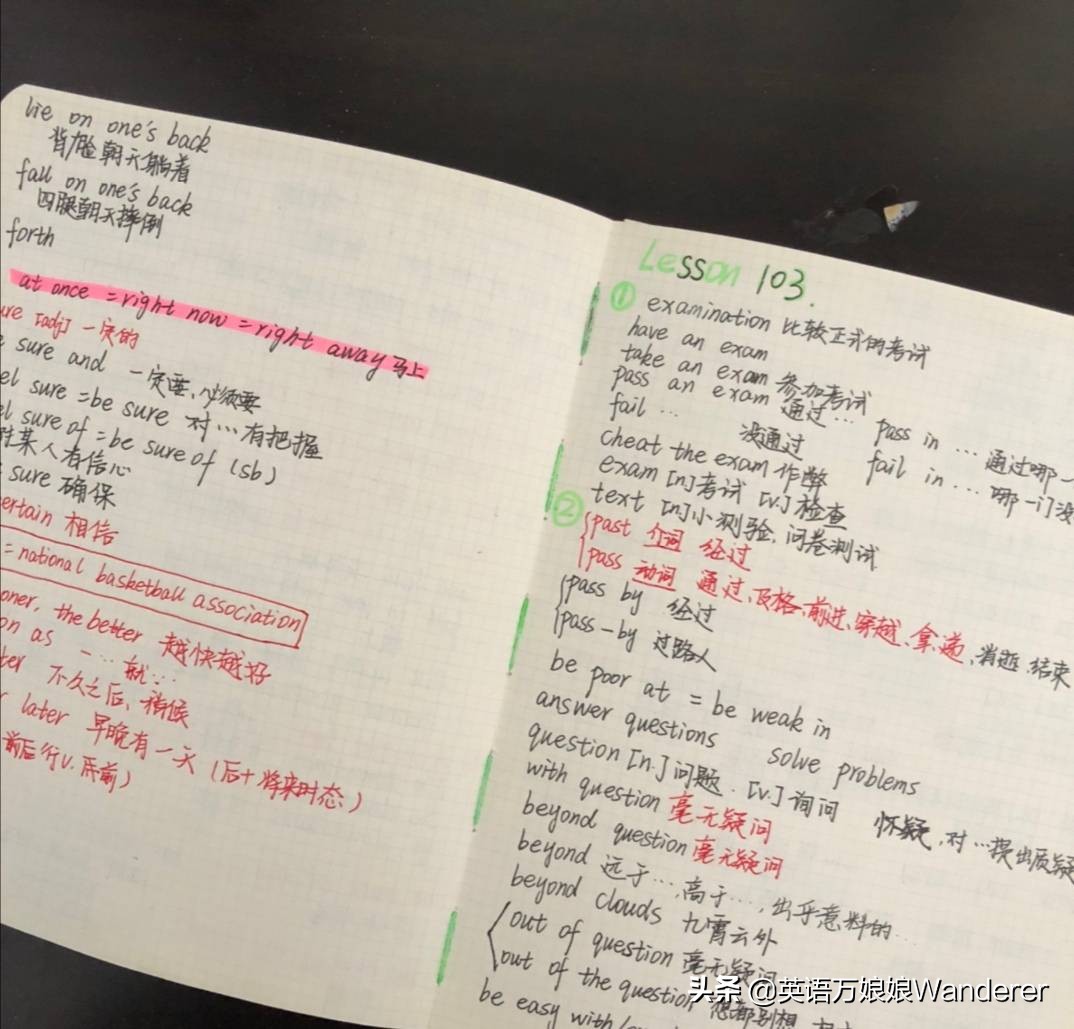 lie on one's back
背/脸朝天躺着
fall on one's back
四腿朝天摔倒
forth
at once = right now = right away 马上
ure [adj] 一定的
sure and 一定要、必须要
el sure = be sure 对…有把握
el sure of = be sure of (sb)
对某人有信心
sure 确保
ertain 相信
= national basketball association
oner, the better 越快越好
on as …就…
ter 不久之后、稍候
later 早晚有一天 (后+将来时态)
Lesson 103.
① examination 比较正式的考试
have an exam
take an exam 参加考试
pass an exam 通过… pass in … 通过哪一
fail … 没通过 fail in … 哪一门没
cheat the exam 作弊
exam [n] 考试 [v.] 检查
② text [n] 小测验、问卷测试
past 介词 经过
pass 动词 通过、及格、前进、穿越、拿递、消逝、结束
pass by 经过
pass-by 过路人
be poor at = be weak in
answer questions solve problems
question [n.] 问题. [v.] 询问 怀疑, 对…提出质疑
with question 毫无疑问
beyond question 毫无疑问
beyond 远于…, 高于…, 出乎意料的…
beyond clouds 九霄云外
out of question 毫无疑问
out of the question 想都别想
be easy with
头条 @英语万娘娘Wanderer